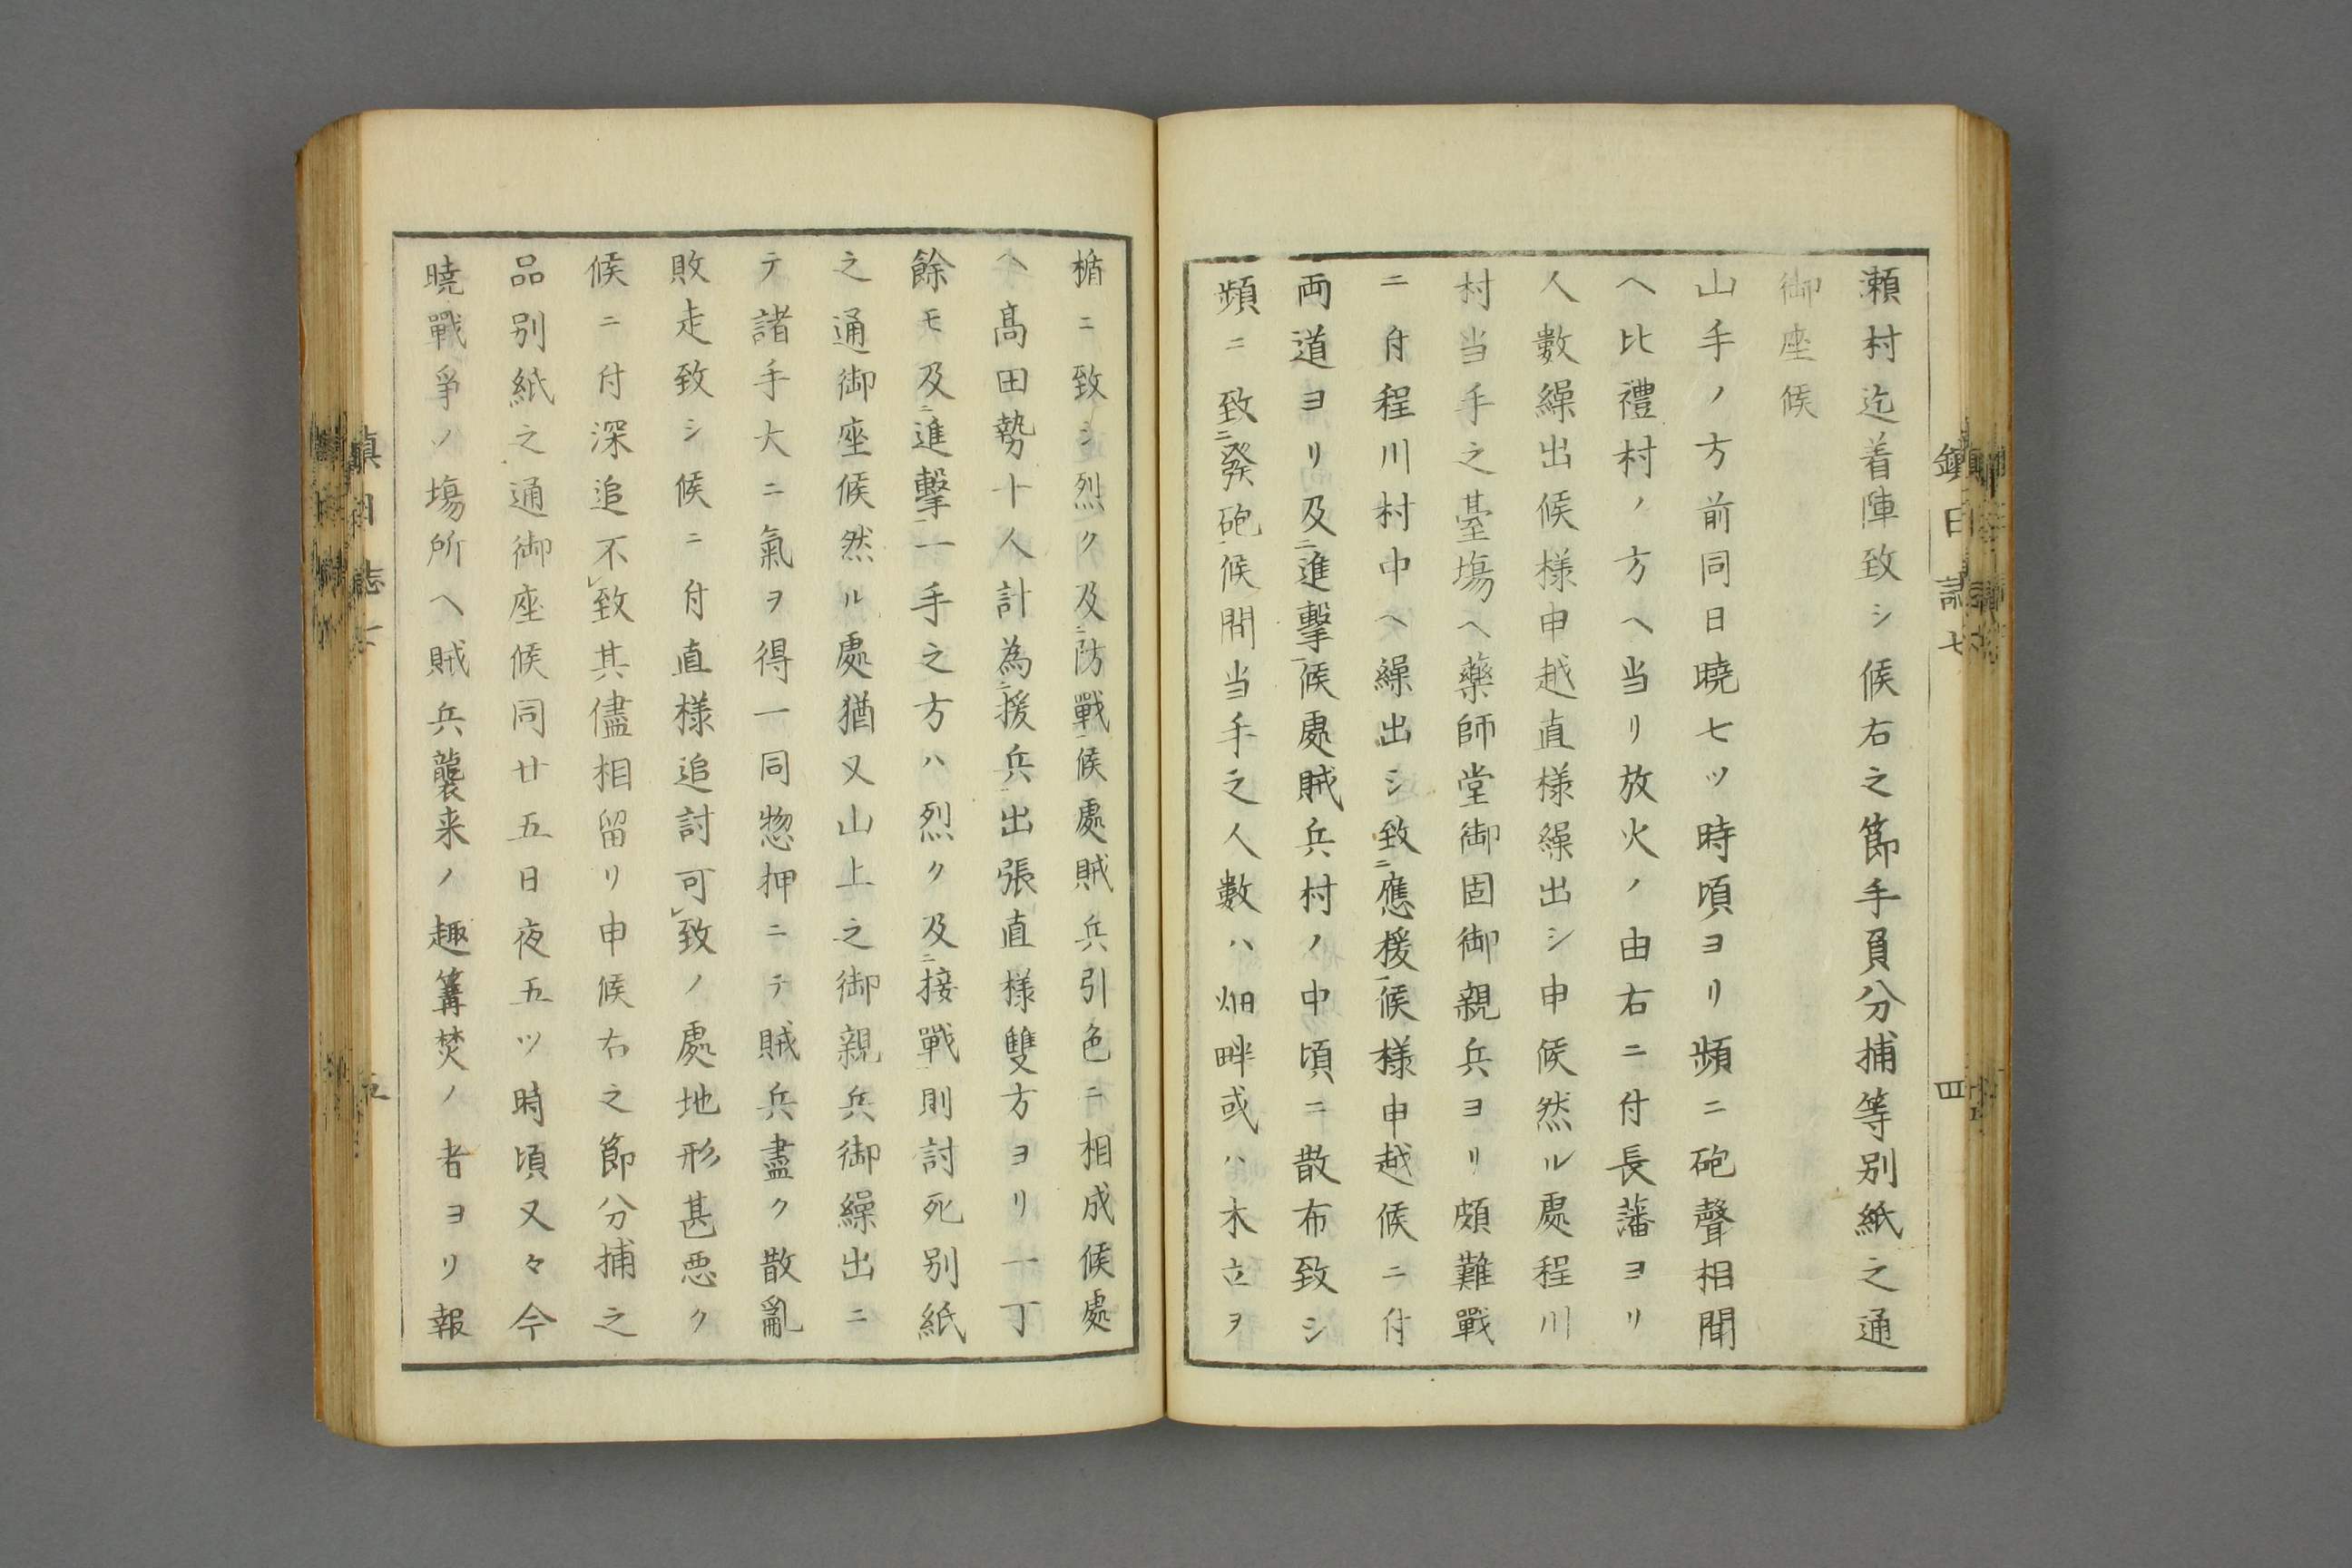 瀬村迄着陣致シ候右之節手負分捕等別紙之通
御座候
山手ノ方前同日曉七ツ時頃ヨリ頻ニ砲聲相聞
ヘ比禮村ノ方ヘ当リ放火ノ由右ニ付長藩ヨリ
人數繰出候様申越直様繰出シ申候然ル處程川
村当手之臺塲ヘ藥師堂御固御親兵ヨリ頗難戰
ニ付程川村中ヘ繰出シ致ニ應援一候様申越候ニ付
両道ヨリ及ニ進擊一候處賊兵村ノ中頃ニ散布致シ
頻ニ致ニ發砲一候間当手之人數ハ畑畔或ハ木立ヲ
楯ニ致シ烈ク及ニ防戰一候處賊兵引色ニ相成候處
ヘ髙田勢十人計為ニ援兵一出張直様雙方ヨリ一丁
餘モ及ニ進擊一一手之方ハ烈ク及ニ接戰一則討死別紙
之通御座候然ル處猶又山上之御親兵御繰出ニ
テ諸手大ニ氣ヲ得一同惣押ニテ賊兵盡ク散亂
敗走致シ候ニ付直様追討可レ致ノ處地形甚悪ク
候ニ付深追不レ致其儘相留リ申候右之節分捕之
品別紙之通御座候同廿五日夜五ツ時頃又々今
曉戰爭ノ塲所ヘ賊兵襲来ノ趣篝焚ノ者ヨリ報
鎮日誌七
四
鎮日誌七
五